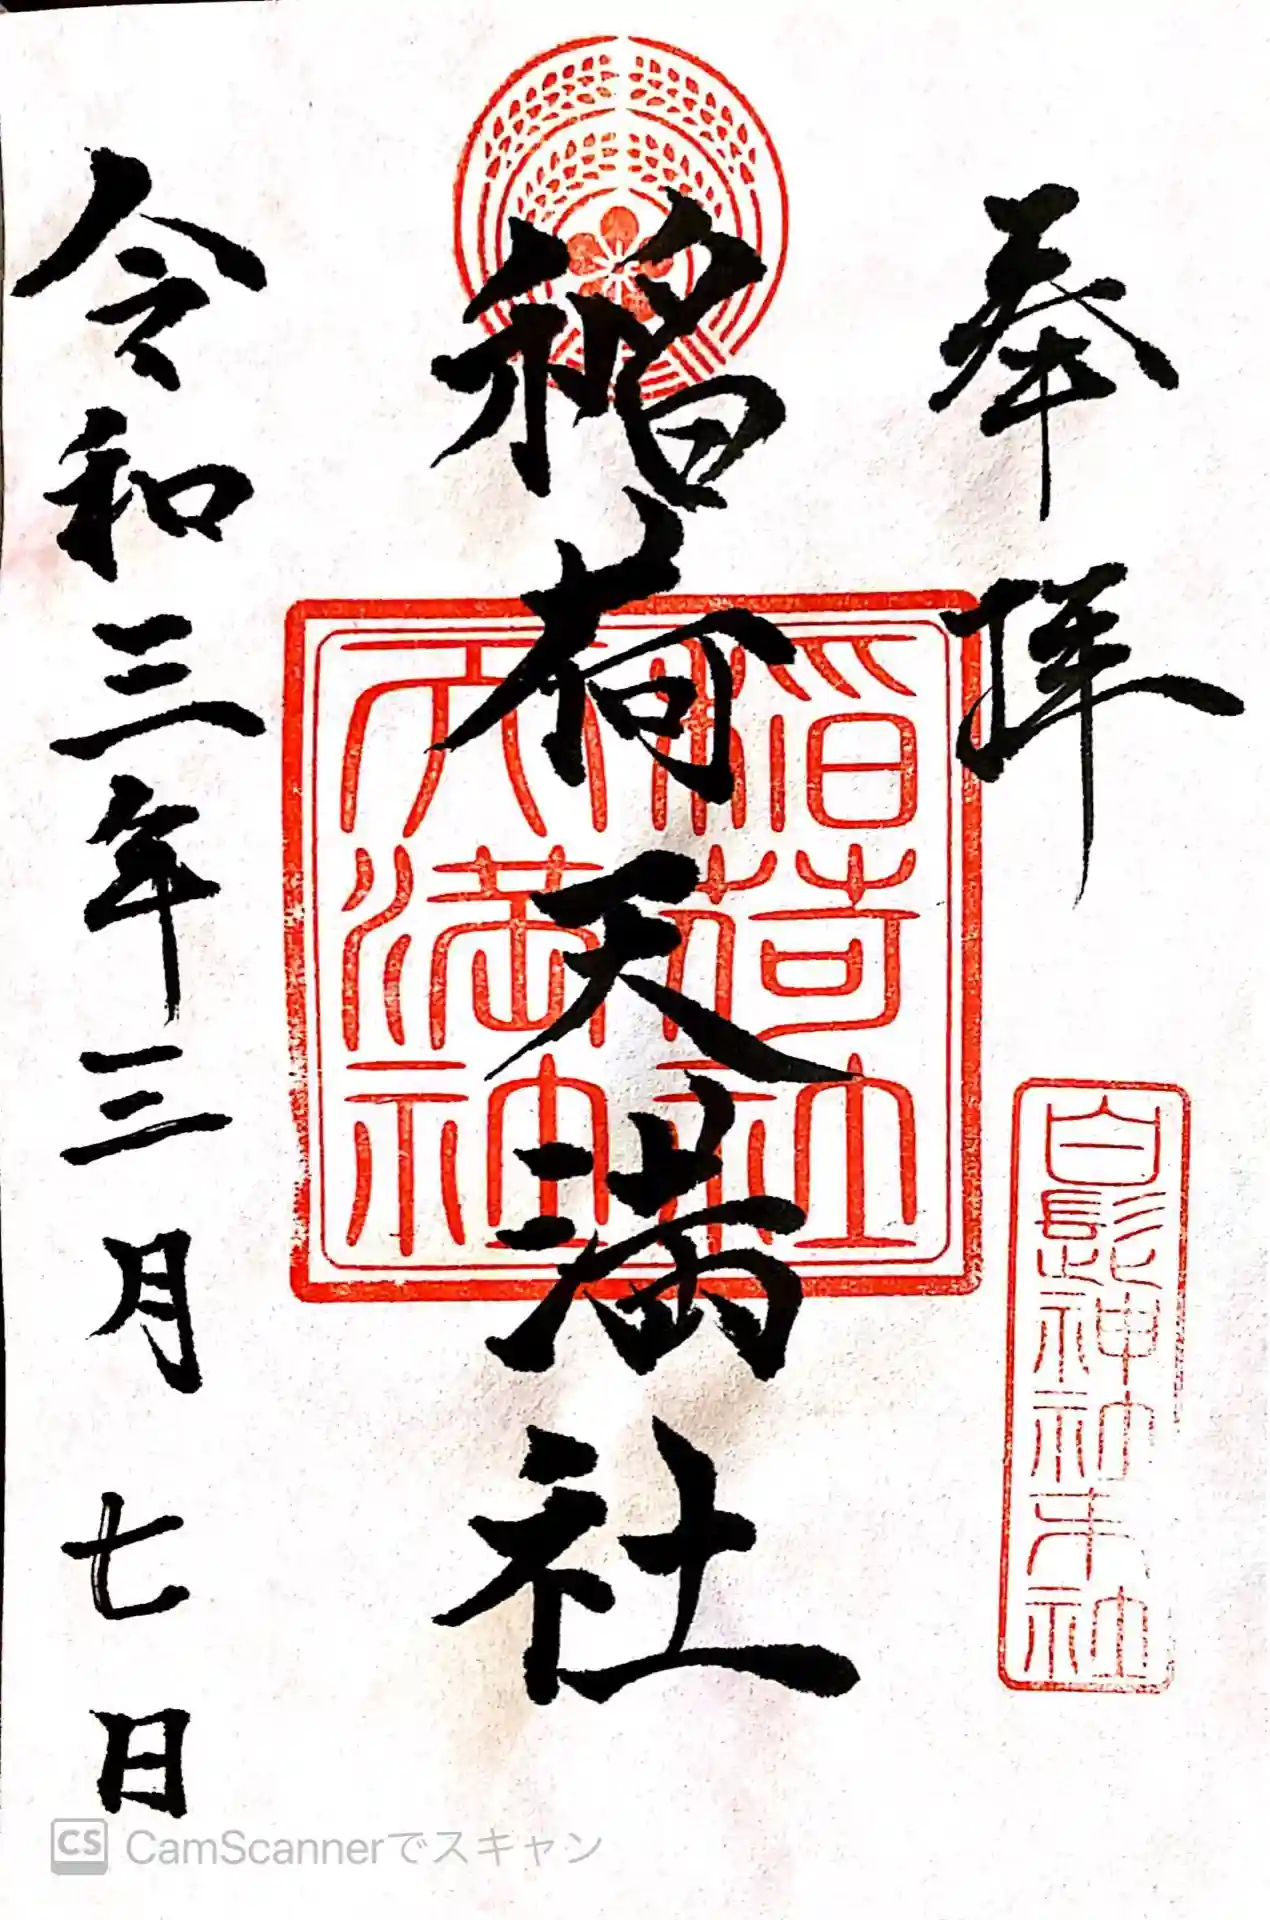 奉拝
白髭神社末社
稲荷天満社
稲荷社
天満神社
令和三年三月七日
CS CamScannerでスキャン